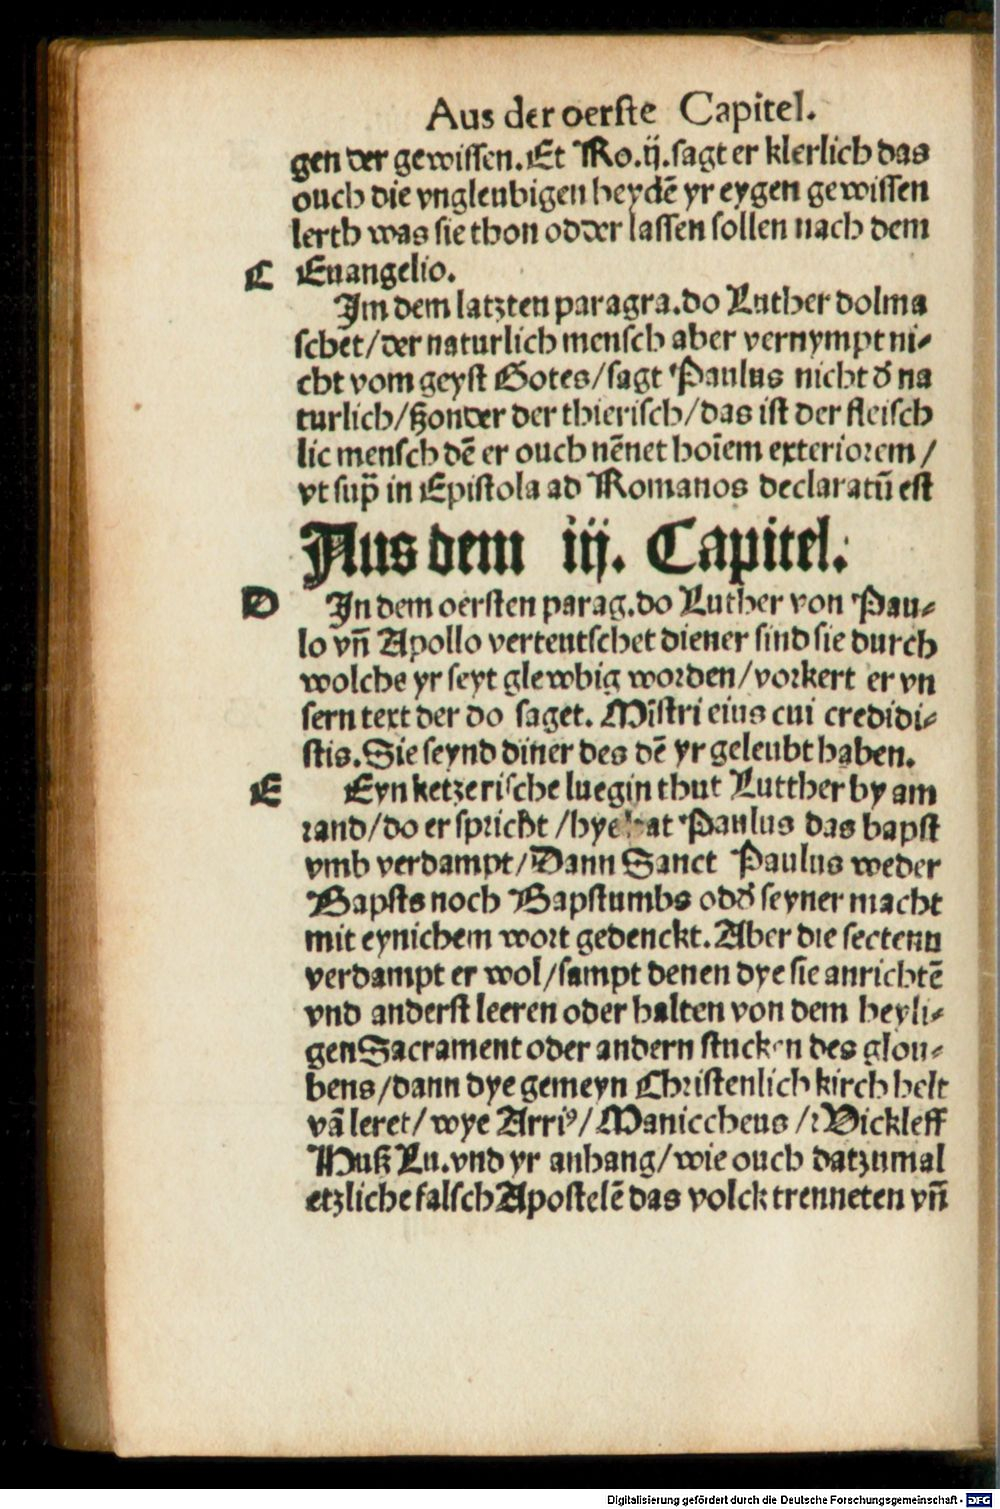 Aus der oerste Capitel.
gen der gewissen. Et Ro.ij. sagt er klerlich das
ouch die vngleubigen heydē yr eygen gewissen
lerth was sie thon odder lassen sollen nach dem
C Euangelio.
Jm dem latzten paragra. do Luther dolma
schet/der naturlich mensch aber vernympt ni⸗
cht vom geyst Gotes/sagt Paulus nicht d̕ na
turlich/ßonder der thierisch/das ist der fleisch
lic mensch dē er ouch nēnet hoīem exteriorem/
vt sup̄ in Epistola ad Romanos declaratū est
Aus dem iij. Capitel.
D Jn dem oersten parag. do Luther von Pau⸗
lo vn̄ Apollo verteutschet diener sind sie durch
wolche yr seyt glewbig worden/vorkert er vn
sern text der do saget. Mīstri eius cui credidi⸗
stis. Sie seynd diner des dē yr geleubt haben.
E Eyn ketzerische luegin thut Lutther by am
rand/do er spricht/hye hat Paulus das bapst
vmb verdampt/Dann Sanct Paulus weder
Bapsts noch Bapstumbs odd̕ seyner macht
mit eynichem wort gedenckt. Aber die sectenn
verdampt er wol/sampt denen dye sie anrichtē
vnd anderst leeren oder halten von dem heyli⸗
gen Sacrament oder andern stucken des glou⸗
bens/dann dye gemeyn Christenlich kirch helt
vā leret/wye Arriꝰ/Maniccheus/Wickleff
Huß Lu. vnd yr anhang/wie ouch datzumal
etzliche falsch Apostelē das volck trenneten vn̄
Digitalisierung gefördert durch die Deutsche Forschungsgemeinschaft - DFG